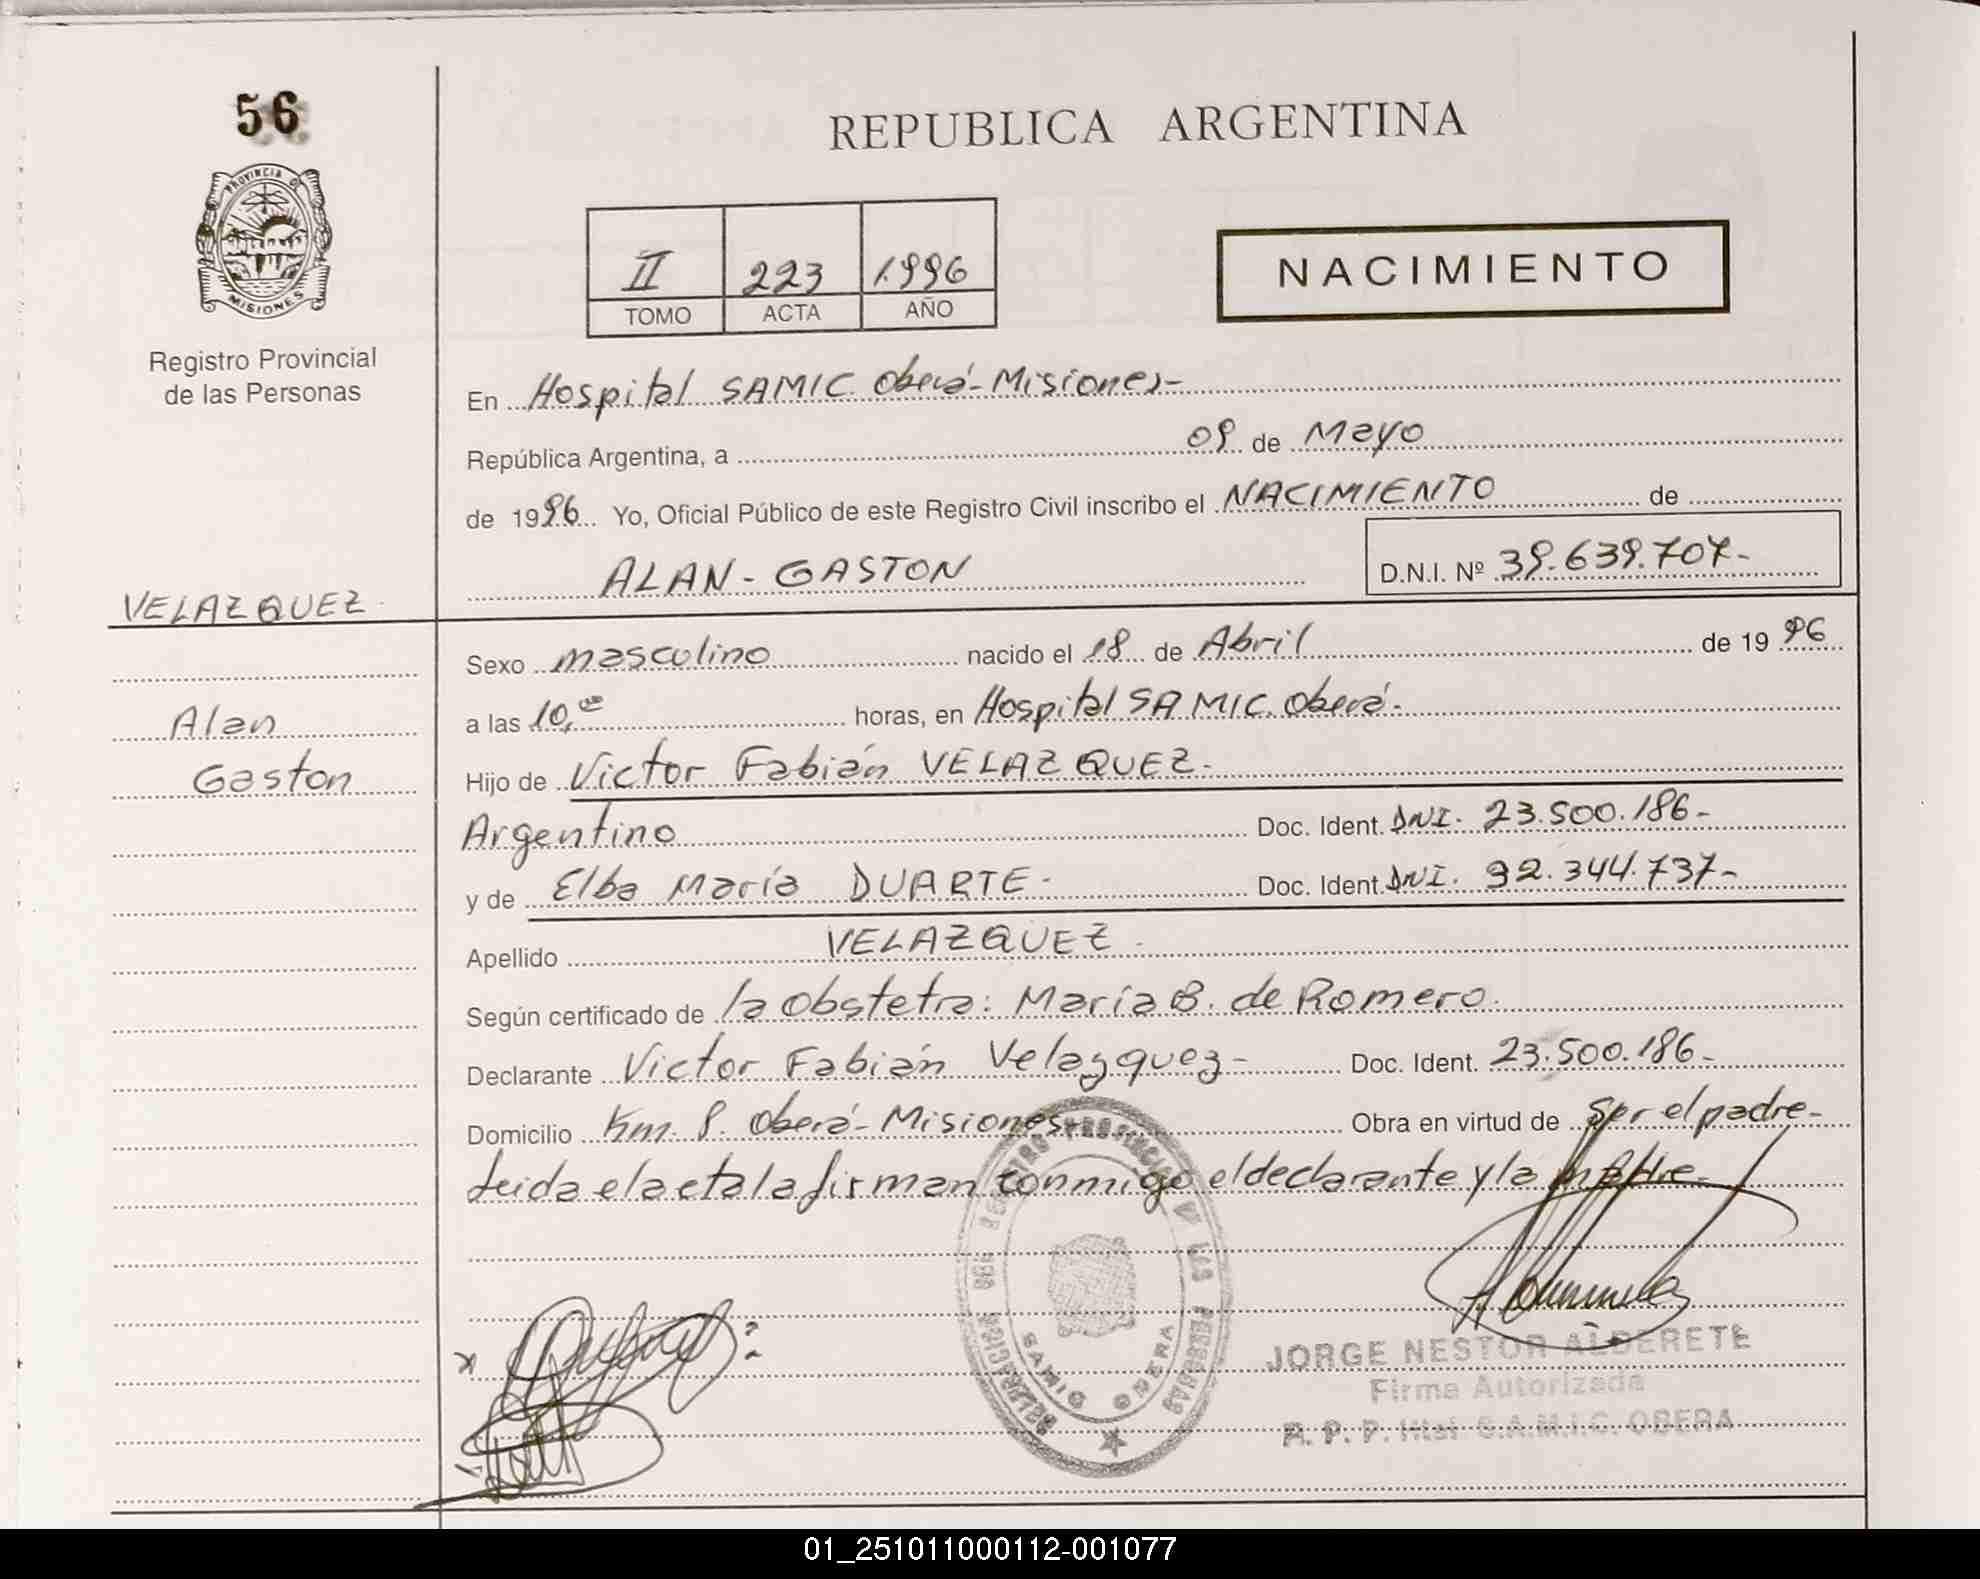 56
PROVINCIA DE
MISIONES
Registro Provincial
de las Personas
REPUBLICA ARGENTINA
II 223 1.996
TOMO ACTA AÑO
NACIMIENTO
En Hospital SAMIC. Oberá-Misiones-
República Argentina, a 09 de Mayo
de 1996 Yo, Oficial Público de este Registro Civil inscribo el NACIMIENTO de
ALAN-GASTON D.N.I. Nº 39.639.707-
VELAZQUEZ
Alan
Gaston
Sexo masculino nacido el 18 de Abril de 1996
a las 10, horas, en Hospital SAMIC. Oberá-
Hijo de Victor Fabián VELAZQUEZ-
Argentino Doc. Ident. DNI. 23.500.186-
y de Elba María DUARTE- Doc. Ident. DNI. 92.344.737-
Apellido VELAZQUEZ-
Según certificado de la obstetra: María B. de Romero.
Declarante Victor Fabián Velazquez- Doc. Ident. 23.500.186-
Domicilio Km. 8. Oberá-Misiones- Obra en virtud de ser el padre-
Leida el acta la firman conmigo el declarante y la madre-
SAMIC OBERA
JORGE NESTOR ALDERETE
Firma Autorizada
R. P. P. Htal S.A.M.I.C. OBERA
01_251011000112-001077